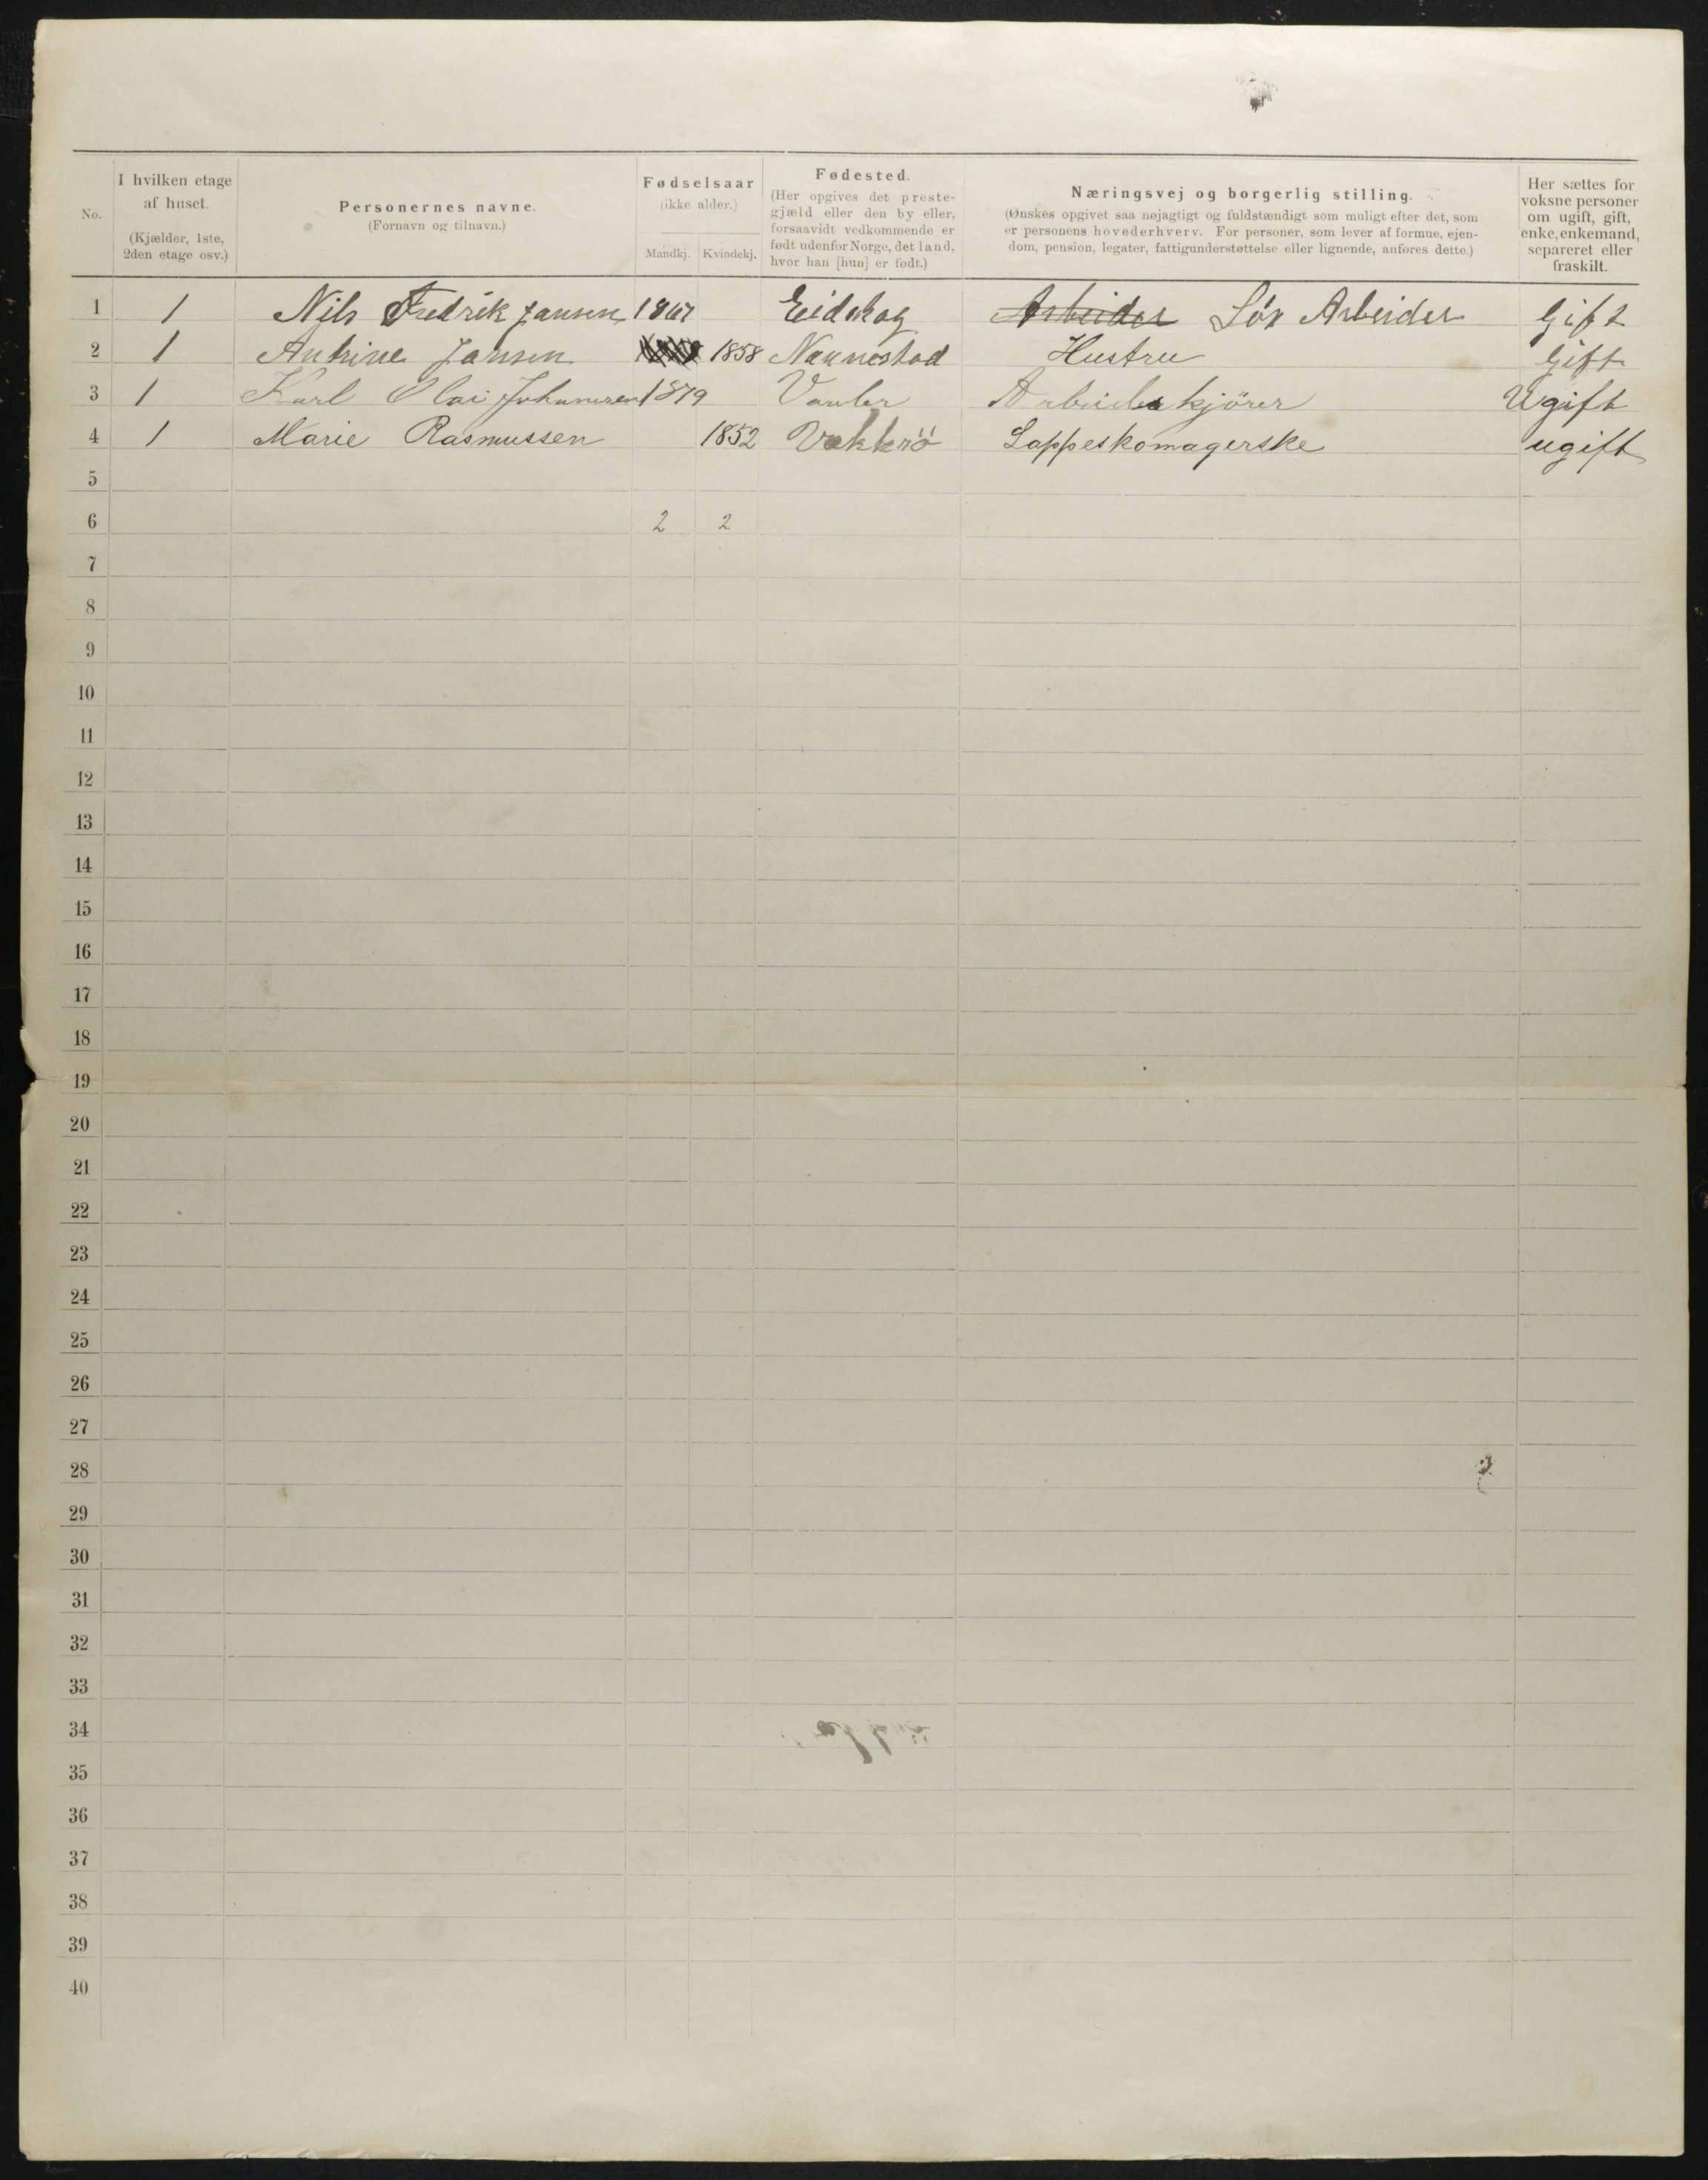 No.
I hvilken etage
af huset.
(Kjælder, 1ste,
2den etage osv.)
Personernes navne.
(Fornavn og tilnavn.)
Fødselsaar
(ikke alder.)
Mandkj. Kvindekj.
Fødested.
(Her opgives det preste-
gjæld eller den by eller,
forsaavidt vedkommende er
født udenfor Norge, det land,
hvor han [hun] er født.)
Næringsvej og borgerlig stilling.
(Ønskes opgivet saa nøjagtigt og fuldstændigt som muligt efter det, som
er personens hovederhverv. For personer, som lever af formue, ejen-
dom, pension, legater, fattigunderstøttelse eller lignende, anføres dette.)
Her sættes for
voksne personer
om ugift, gift,
enke, enkemand,
separeret eller
fraskilt.
1 1 Nils Fredrik Jansen 1867 Eidskog Arbeider Løs Arbeider Gift
2 1 Antrine Jansen 1858 Nannestad Hustru Gift
3 1 Karl Olai Johansen 1879 Arbeidskjører Ugift
4 1 Marie Rasmussen 1852 Vækkrö Lappeskomagerske ugift
5
6 2 2
7
8
9
10
11
12
13
14
15
16
17
18
19
20
21
22
23
24
25
26
27
28
29
30
31
32
33
34
35
36
37
38
39
40